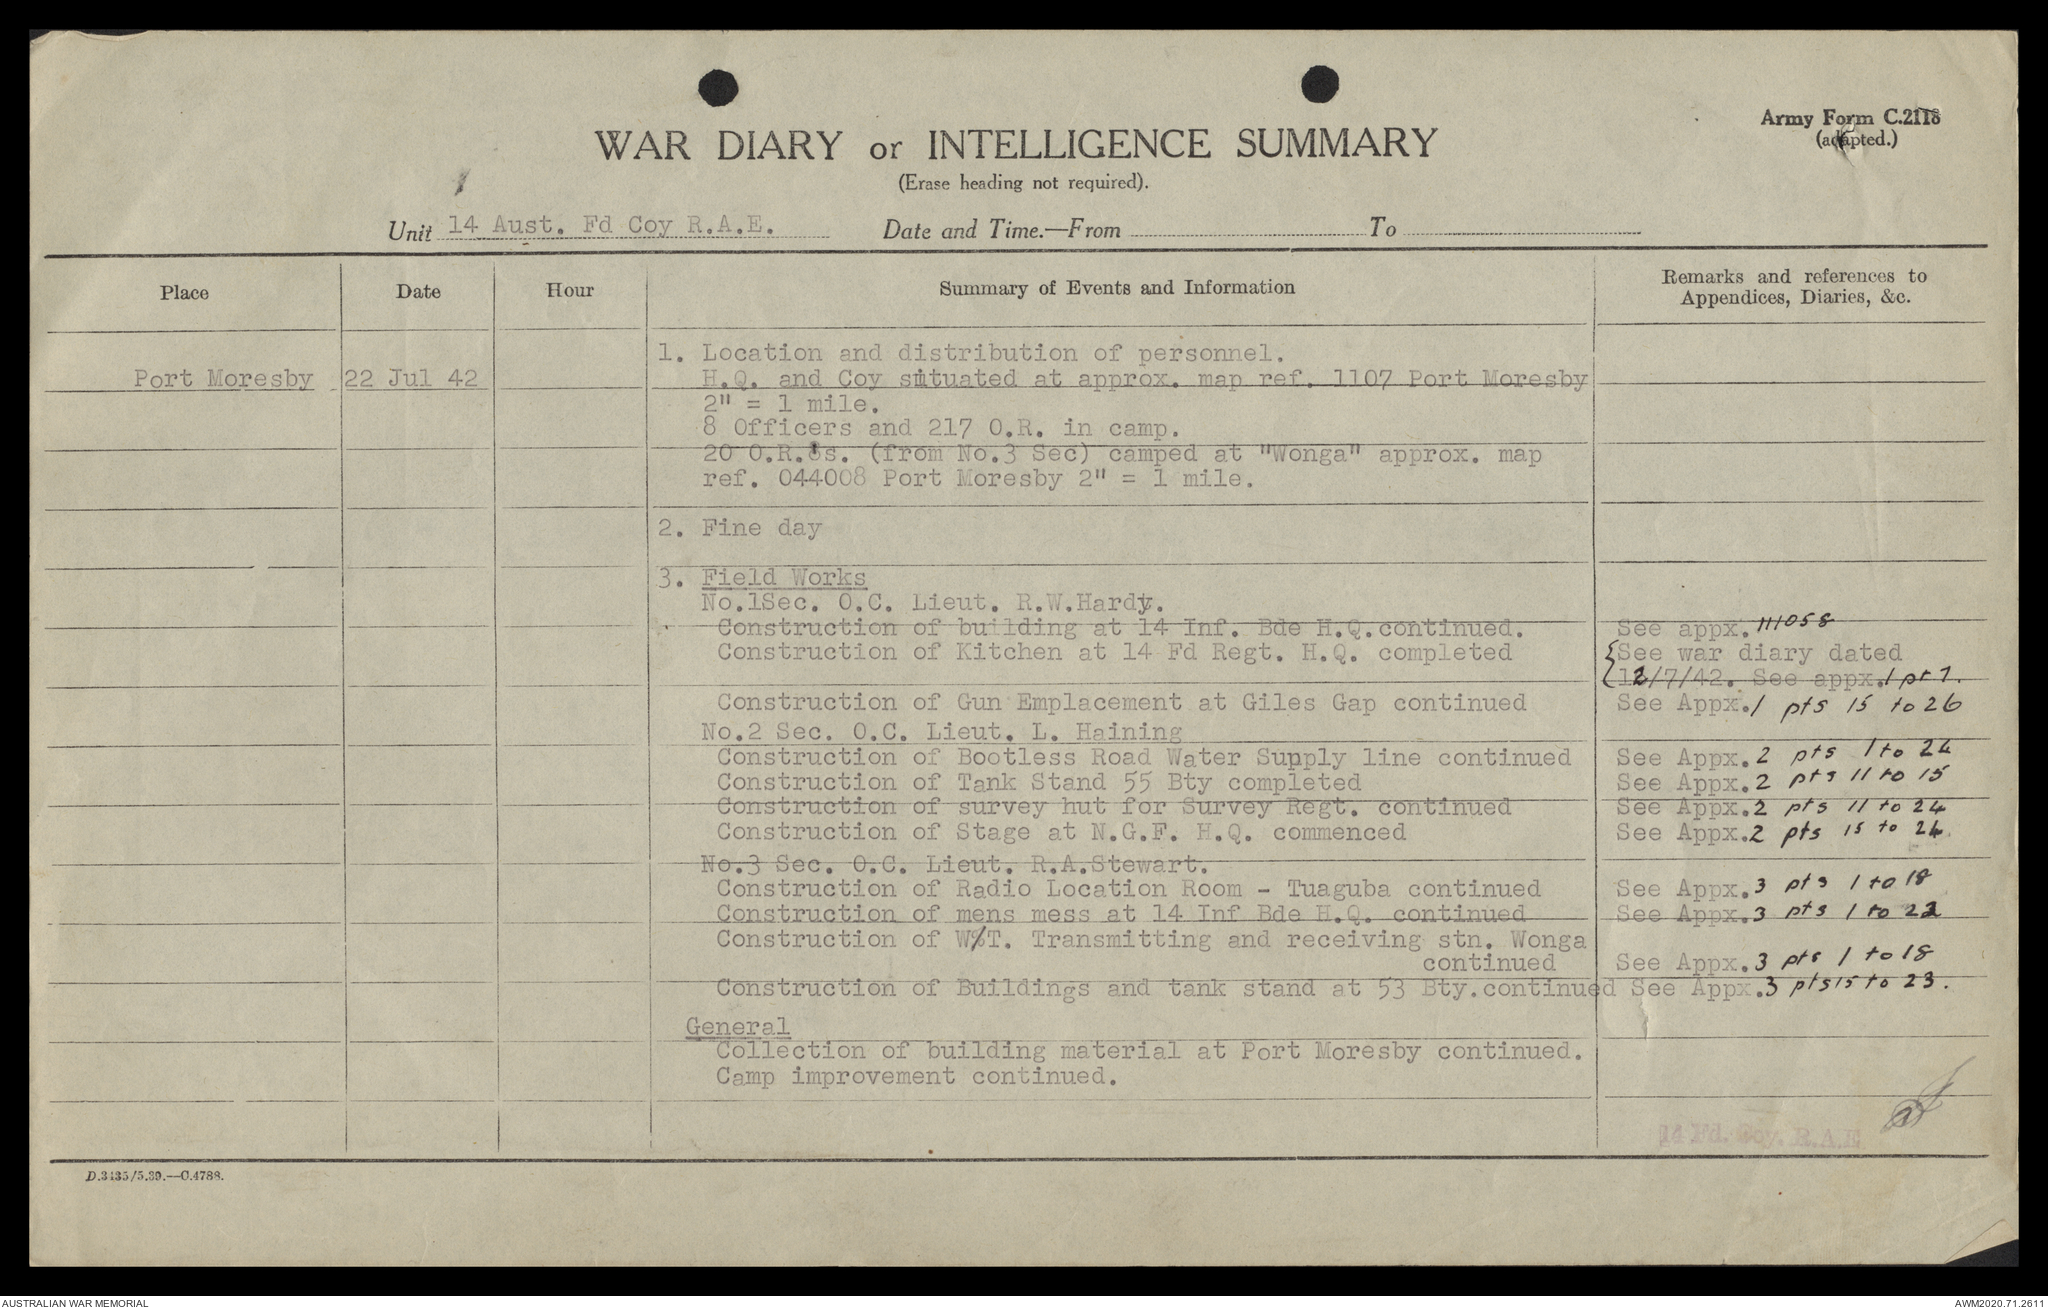 Army Form C.2118
(adapted.)
WAR DIARY or INTELLIGENCE SUMMARY
(Erase heading not required).
Unit 14 Aust. Fd Coy R.A.E. Date and Time.—From To
Place Date Hour Summary of Events and Information Remarks and references to Appendices, Diaries, &c.
1. Location and distribution of personnel.
Port Moresby 22 Jul 42 H.Q. and Coy situated at approx. map ref. 1107 Port Moresby
2" = 1 mile.
8 Officers and 217 O.R. in camp.
20 O.R.s. (from No.3 Sec) camped at "Wonga" approx. map
ref. 044008 Port Moresby 2" = 1 mile.
2. Fine day
3. Field Works
No.1Sec. O.C. Lieut. R.W.Hardy.
Construction of building at 14 Inf. Bde H.Q.continued. See appx. 111058
Construction of Kitchen at 14 Fd Regt. H.Q. completed See war diary dated
12/7/42. See appx. 1 pt 7.
Construction of Gun Emplacement at Giles Gap continued See Appx. 1 pts 15 to 26
No.2 Sec. O.C. Lieut. L. Haining
Construction of Bootless Road Water Supply line continued See Appx. 2 pts 1 to 24
Construction of Tank Stand 55 Bty completed See Appx. 2 pts 11 to 15
Construction of survey hut for Survey Regt. continued See Appx. 2 pts 11 to 24
Construction of Stage at N.G.F. H.Q. commenced See Appx. 2 pts 15 to 24.
No.3 Sec. O.C. Lieut. R.A.Stewart.
Construction of Radio Location Room - Tuaguba continued See Appx. 3 pts 1 to 18
Construction of mens mess at 14 Inf Bde H.Q. continued See Appx. 3 pts 1 to 22
Construction of W/T. Transmitting and receiving stn. Wonga
continued See Appx. 3 pts 1 to 18
Construction of Buildings and tank stand at 53 Bty.continued See Appx. 3 pts 15 to 23.
General
Collection of building material at Port Moresby continued.
Camp improvement continued.
14 Fd. Coy. R.A.E
D.3435/5.39.—C.4788.
AUSTRALIAN WAR MEMORIAL AWM2020.71.2611